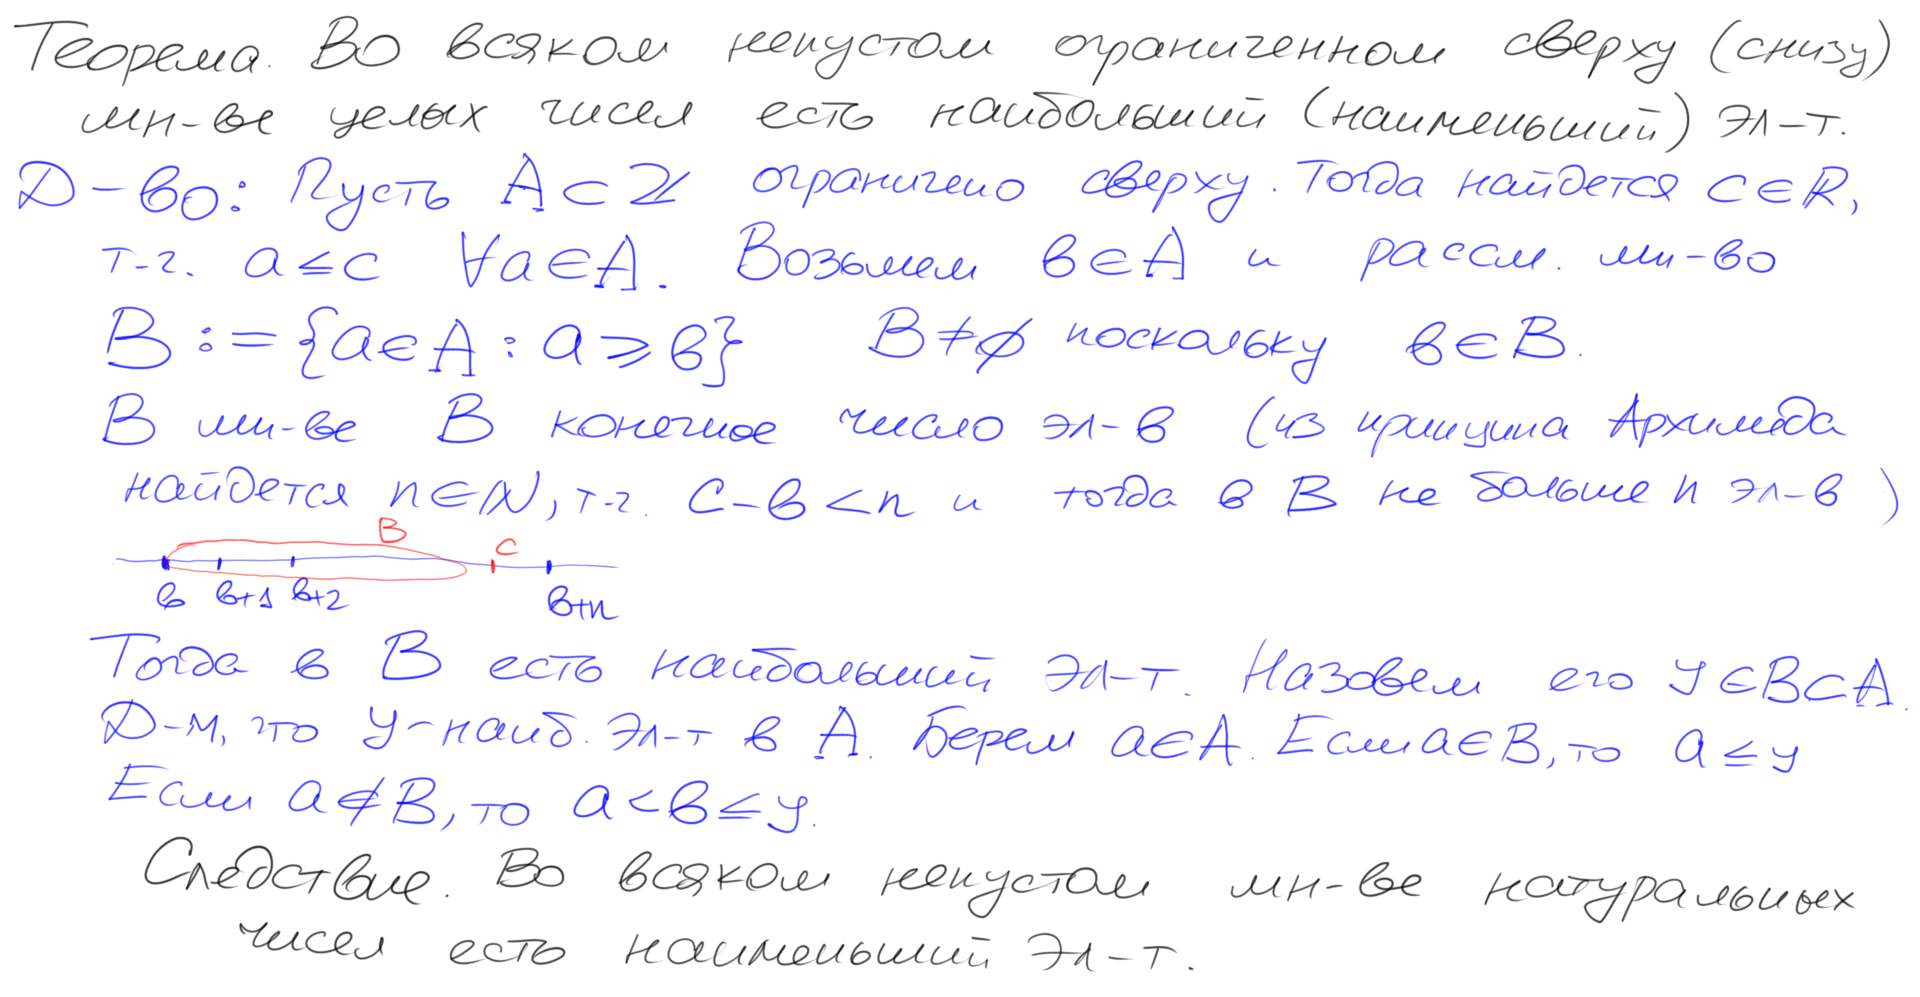 Теорема. Во всяком непустом ограниченном сверху (снизу)
мн-ве целых чисел есть наибольший (наименьший) эл-т.
Д-во: Пусть A ⊂ ℤ ограничено сверху. Тогда найдется c ∈ ℝ,
т.ч. a ≤ c ∀a ∈ A. Возьмем b ∈ A и рассм. мн-во
B := {a ∈ A : a ⩾ b} B ≠ ∅ поскольку b ∈ B.
В мн-ве B конечное число эл-в (из принципа Архимеда
найдется n ∈ ℕ, т.ч. c - b < n и тогда в B не больше n эл-в)
B c
b b+1 b+2 b+n
Тогда в B есть наибольший эл-т. Назовем его y ∈ B ⊂ A.
Д-м, что y - наиб. эл-т в A. Берем a ∈ A. Если a ∈ B, то a ≤ y
Если a ∉ B, то a < b ≤ y.
Следствие. Во всяком непустом мн-ве натуральных
чисел есть наименьший эл-т.